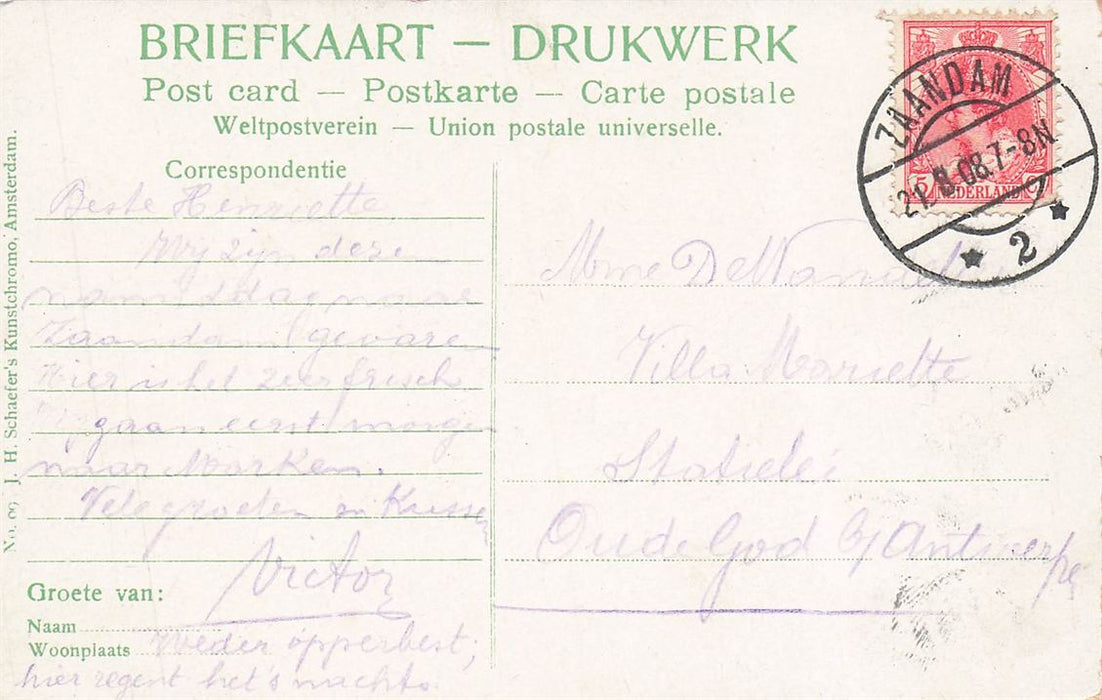 BRIEFKAART — DRUKWERK
Post card — Postkarte — Carte postale
Weltpostverein — Union postale universelle.
Correspondentie
Beste Henriette
Wij zijn deze
namiddag naar
Zaandam gevare
Hier is het zeer frisch
Wij gaan eerst morgen
naar Marken.
Vele groeten en Kussen
Victor
Groete van:
Naam
Woonplaats
Weder opperbest,
hier regent het 's nachts.
No. J. H. Schaefer's Kunstchromo, Amsterdam.
ZAANDAM
21.8.08.7-8N
2
5 NEDERLAND
Mme De
Villa Mariette
Oude God b/ Antwerpe